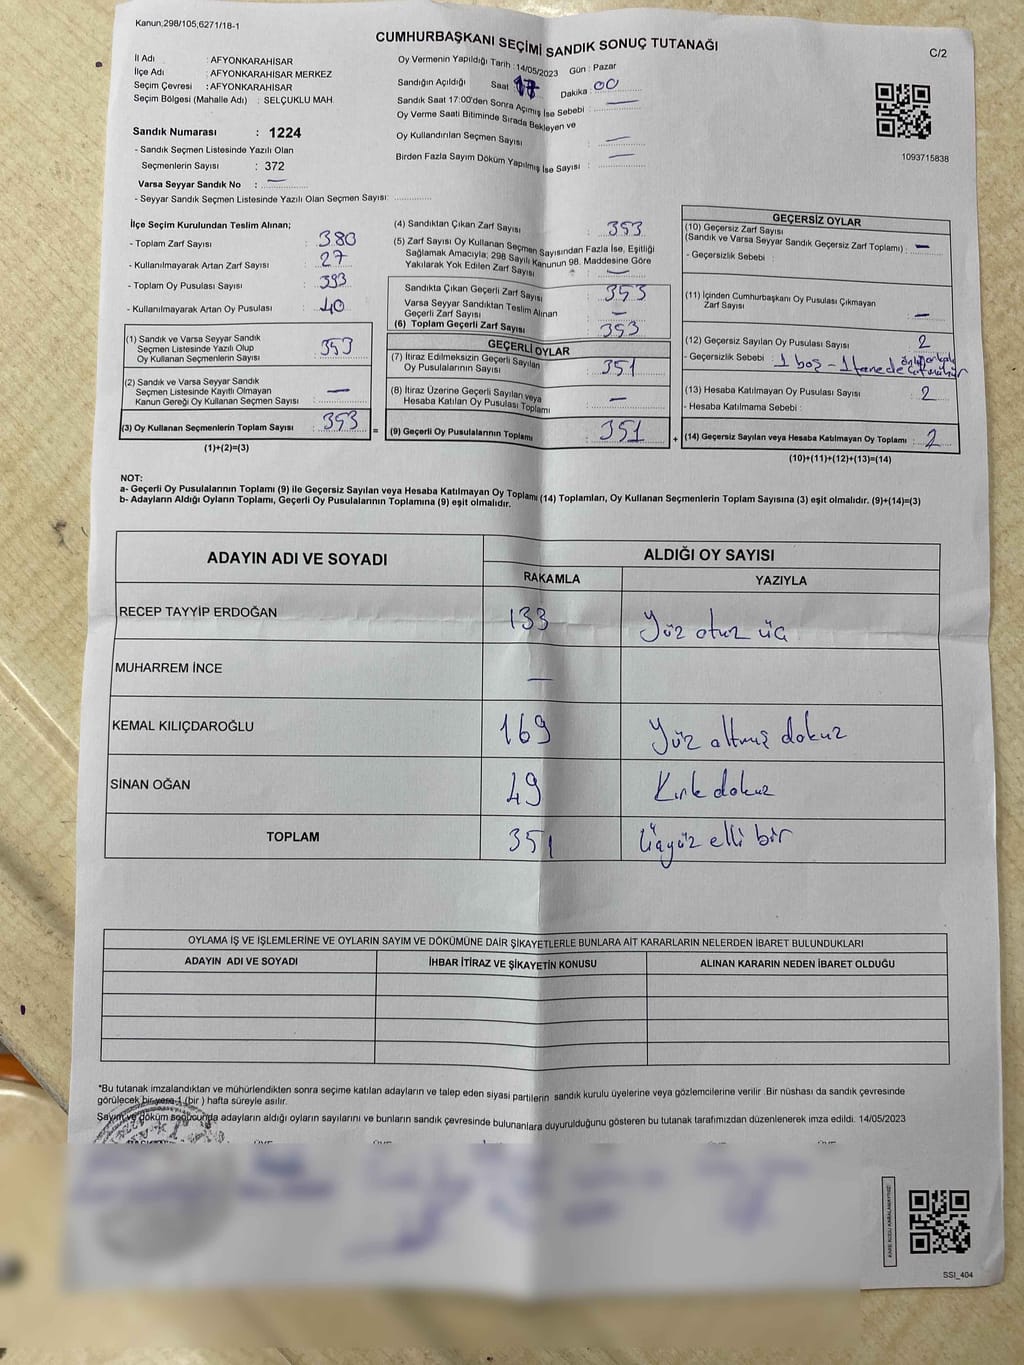 Kanun,298/105,6271/18-1
CUMHURBAŞKANI SEÇİMİ SANDIK SONUÇ TUTANAĞI
C/2
İl Adı : AFYONKARAHİSAR
İlçe Adı : AFYONKARAHİSAR MERKEZ
Seçim Çevresi : AFYONKARAHİSAR
Seçim Bölgesi (Mahalle Adı) : SELÇUKLU MAH.
Sandık Numarası : 1224
- Sandık Seçmen Listesinde Yazılı Olan
Seçmenlerin Sayısı : 372
Varsa Seyyar Sandık No : —
- Seyyar Sandık Seçmen Listesinde Yazılı Olan Seçmen Sayısı:
Oy Vermenin Yapıldığı Tarih : 14/05/2023 Gün : Pazar
Sandığın Açıldığı Saat 17 Dakika : 00
Sandık Saat 17:00'den Sonra Açımış İse Sebebi : —
Oy Verme Saati Bitiminde Sırada Bekleyen ve
Oy Kullandırılan Seçmen Sayısı : —
Birden Fazla Sayım Döküm Yapılmış İse Sayısı : —
1093715838
İlçe Seçim Kurulundan Teslim Alınan;
- Toplam Zarf Sayısı : 380
- Kullanılmayarak Artan Zarf Sayısı : 27
- Toplam Oy Pusulası Sayısı : 393
- Kullanılmayarak Artan Oy Pusulası : 40
(1) Sandık ve Varsa Seyyar Sandık
Seçmen Listesinde Yazılı Olup
Oy Kullanan Seçmenlerin Sayısı : 353
(2) Sandık ve Varsa Seyyar Sandık
Seçmen Listesinde Kayıtlı Olmayan
Kanun Gereği Oy Kullanan Seçmen Sayısı : —
(3) Oy Kullanan Seçmenlerin Toplam Sayısı : 353
(1)+(2)=(3)
(4) Sandıktan Çıkan Zarf Sayısı : 353
(5) Zarf Sayısı Oy Kullanan Seçmen Sayısından Fazla İse, Eşitliği
Sağlamak Amacıyla; 298 Sayılı Kanunun 98. Maddesine Göre
Yakılarak Yok Edilen Zarf Sayısı : —
Sandıkta Çıkan Geçerli Zarf Sayısı : 353
Varsa Seyyar Sandıktan Teslim Alınan
Geçerli Zarf Sayısı : —
(6) Toplam Geçerli Zarf Sayısı : 353
GEÇERLİ OYLAR
(7) İtiraz Edilmeksizin Geçerli Sayılan
Oy Pusulalarının Sayısı : 351
(8) İtiraz Üzerine Geçerli Sayılan veya
Hesaba Katılan Oy Pusulası Toplamı : —
= (9) Geçerli Oy Pusulalarının Toplamı : 351
GEÇERSİZ OYLAR
(10) Geçersiz Zarf Sayısı
(Sandık ve Varsa Seyyar Sandık Geçersiz Zarf Toplamı) : —
- Geçersizlik Sebebi :
(11) İçinden Cumhurbaşkanı Oy Pusulası Çıkmayan
Zarf Sayısı : —
(12) Geçersiz Sayılan Oy Pusulası Sayısı : 2
- Geçersizlik Sebebi : 1 boş - 1 tane de
(13) Hesaba Katılmayan Oy Pusulası Sayısı : 2
- Hesaba Katılmama Sebebi :
+ (14) Geçersiz Sayılan veya Hesaba Katılmayan Oy Toplamı : 2
(10)+(11)+(12)+(13)=(14)
NOT:
a- Geçerli Oy Pusulalarının Toplamı (9) ile Geçersiz Sayılan veya Hesaba Katılmayan Oy Toplamı (14) Toplamları, Oy Kullanan Seçmenlerin Toplam Sayısına (3) eşit olmalıdır. (9)+(14)=(3)
b- Adayların Aldığı Oyların Toplamı, Geçerli Oy Pusulalarının Toplamına (9) eşit olmalıdır.
ADAYIN ADI VE SOYADI
ALDIĞI OY SAYISI
RAKAMLA YAZIYLA
RECEP TAYYİP ERDOĞAN 133 Yüz otuz üç
MUHARREM İNCE —
KEMAL KILIÇDAROĞLU 169 Yüz altmış dokuz
SİNAN OĞAN 49 Kırk dokuz
TOPLAM 351 Üçyüz elli bir
OYLAMA İŞ VE İŞLEMLERİNE VE OYLARIN SAYIM VE DÖKÜMÜNE DAİR ŞİKAYETLERLE BUNLARA AİT KARARLARIN NELERDEN İBARET BULUNDUKLARI
ADAYIN ADI VE SOYADI İHBAR İTİRAZ VE ŞİKAYETİN KONUSU ALINAN KARARIN NEDEN İBARET OLDUĞU
*Bu tutanak imzalandıktan ve mühürlendikten sonra seçime katılan adayların ve talep eden siyasi partilerin sandık kurulu üyelerine veya gözlemcilerine verilir. Bir nüshası da sandık çevresinde
görülecek bir yere 1 (bir ) hafta süreyle asılır.
Sayım ve döküm sonucunda adayların aldığı oyların sayılarını ve bunların sandık çevresinde bulunanlara duyurulduğunu gösteren bu tutanak tarafımızdan düzenlenerek imza edildi. 14/05/2023
SSI_404